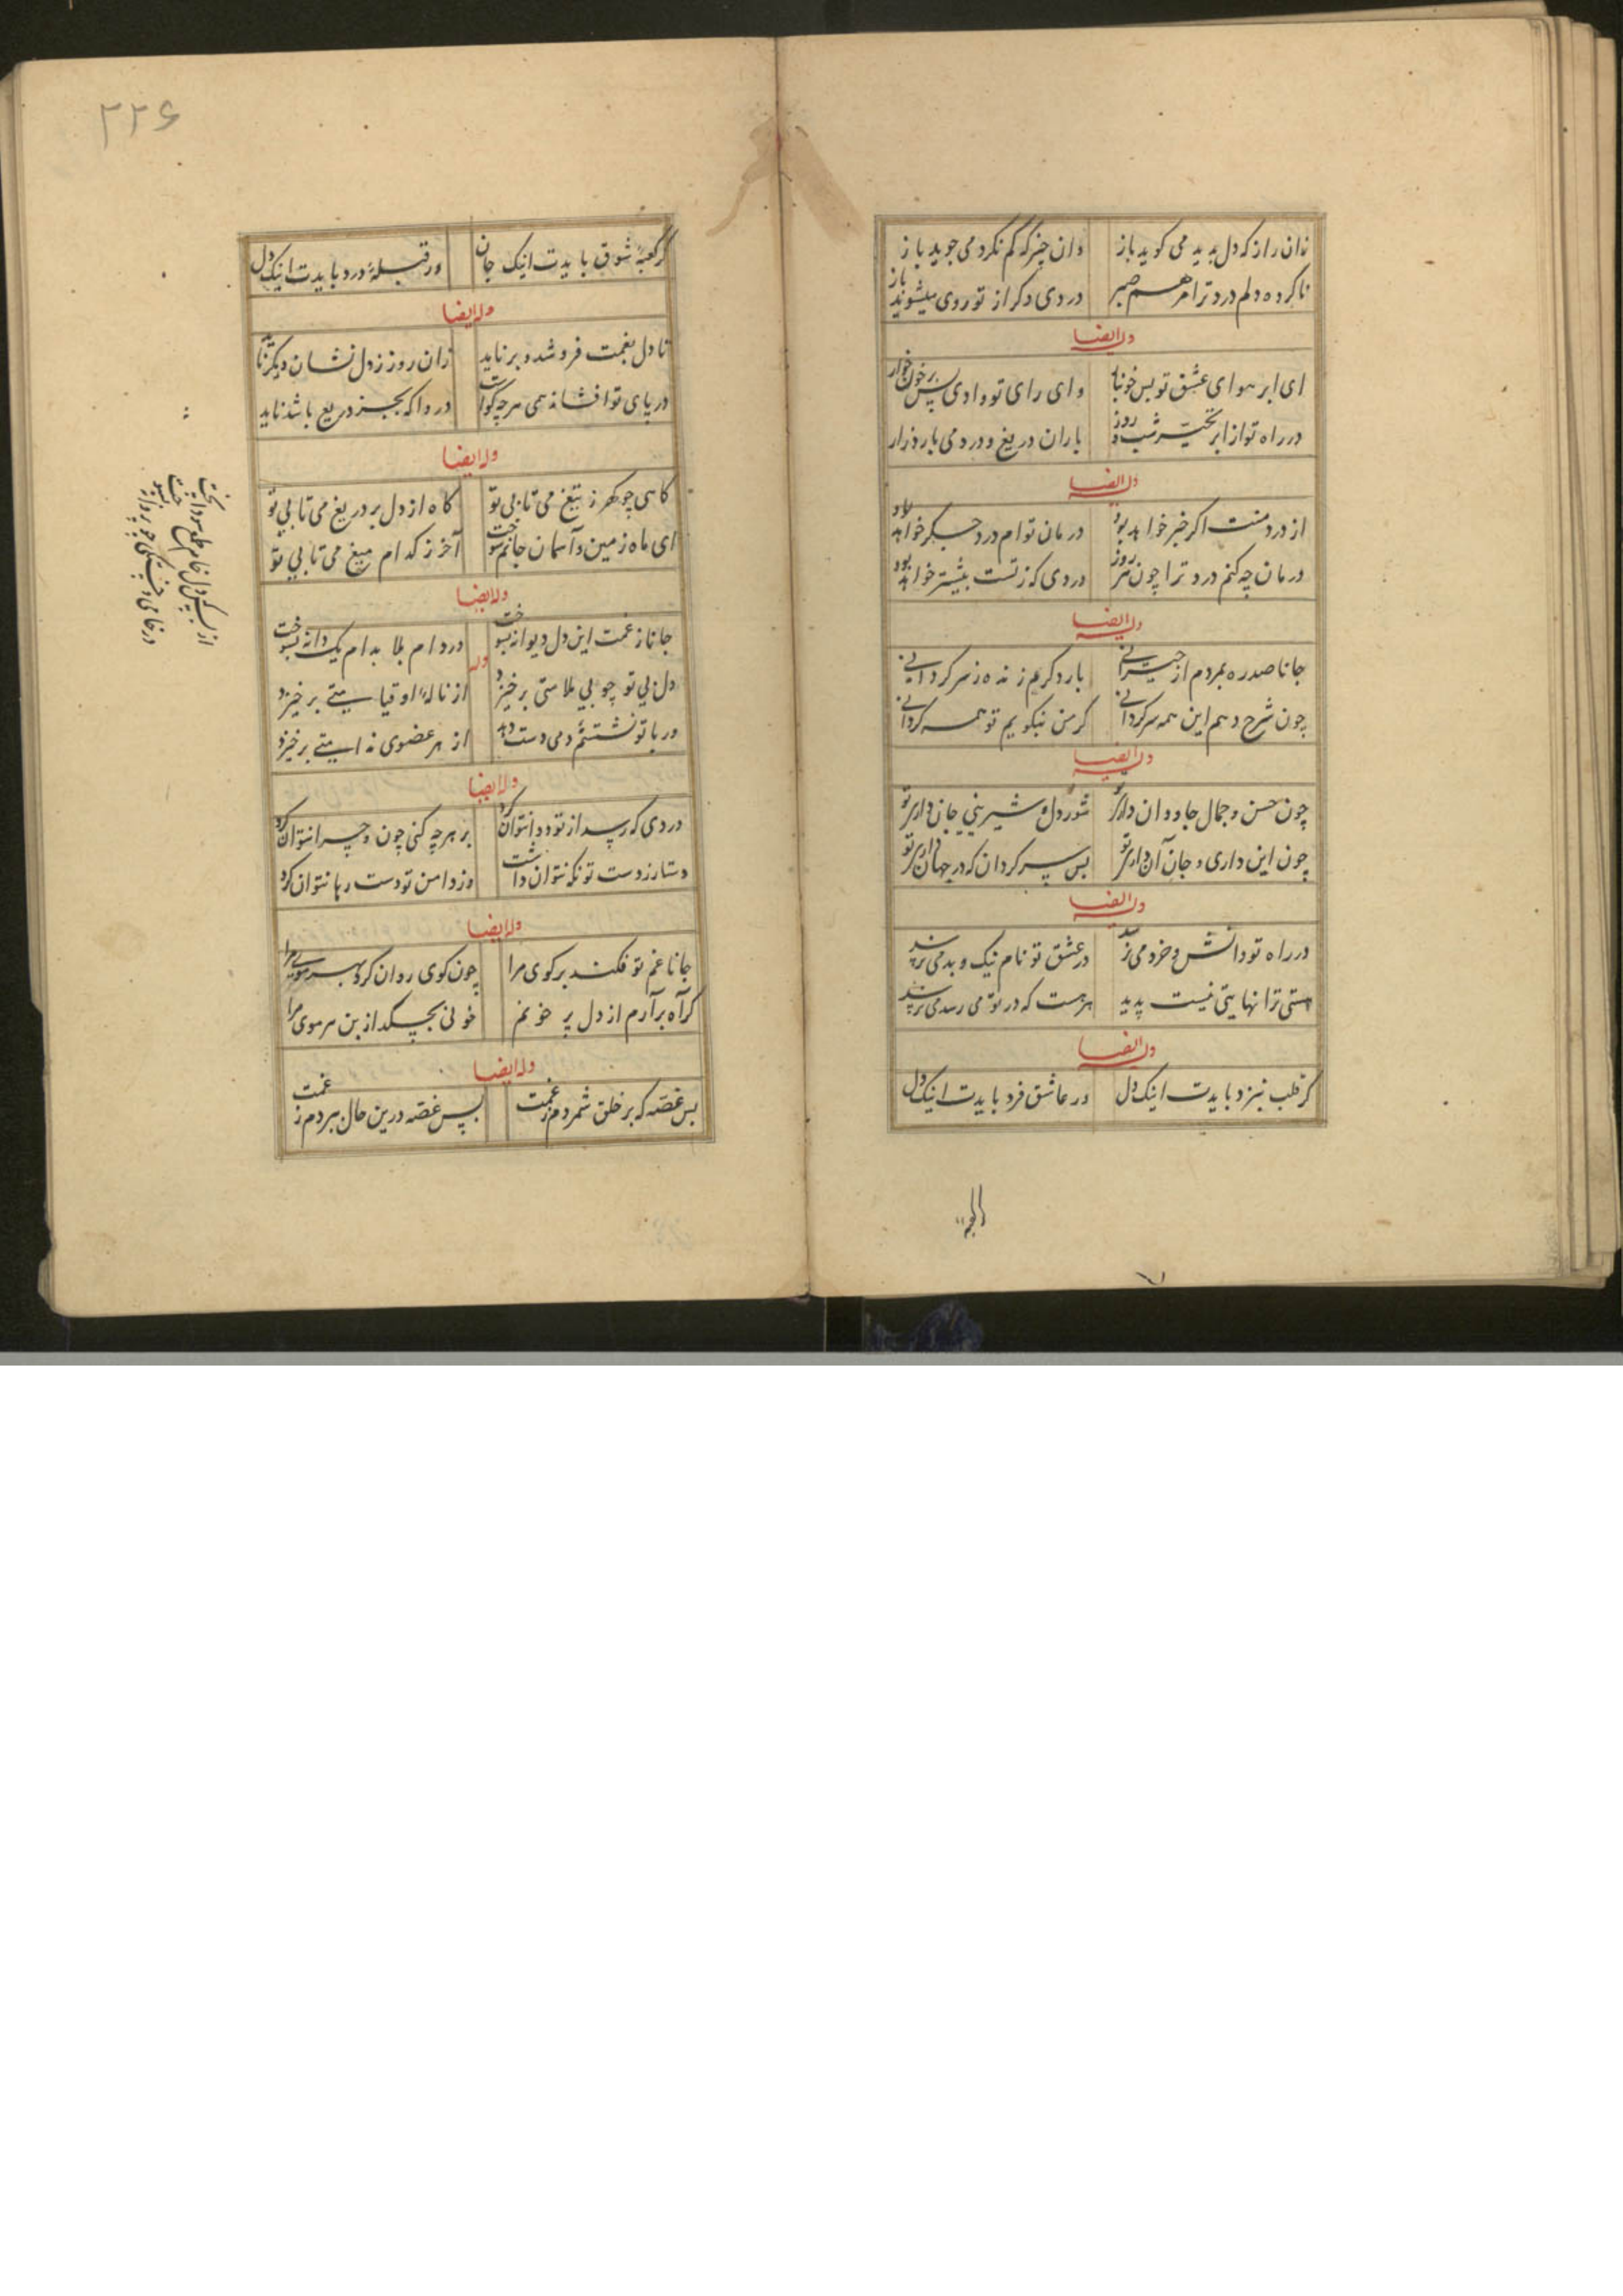 زان راز که دل بدید می گوید باز
وان چیز که گم نکرد می جوید باز
ناکرده دلم درد ترا مرهم صبر
دردی دگر از تو روی میشوید باز
وله ایضا
ای ابر هوای عشق تو بس خونبار
وای رای تو وادی بس پر خون خوار
در راه تو از ابر تحیر شب و روز
باران دریغ و درد می بارد زار
وله ایضا
از درد منت اگر خبر خواهد بود
درمان توام درد جگر خواهد بود
درمان چه کنم درد ترا چون هر روز
دردی که ز تست بیشتر خواهد بود
وله ایضا
جانا صد ره بمردم از حیرانی
بار دگرم زنده ز سر گردانی
چون شرح دهم این همه سرگردانی
گر من نگویم تو همه گردانی
وله ایضا
چون حسن و جمال جاودان داری تو
شور دل و شیرینی جان داری تو
چون این داری و جان آن داری تو
بس سرگردان که در جهان داری تو
وله ایضا
در راه تو دانش و خرد می نرسد
در عشق تو نام نیک و بد می نرسد
هستی ترا نهایتی نیست پدید
هر هست که در تو می رسد می نرسد
وله ایضا
گر قلب نبرد بایدت اینک دل
ور عاشق فرد بایدت اینک دل
۲۲۶
گر کعبهٔ شوق بایدت اینک جان
ور قبلهٔ درد بایدت اینک دل
وله ایضا
تا دل بغمت فرو شد و بر ناید
زان روز ز دل نشان دیگر ناید
در پای تو افشانه همی هر چه
دردا که بجز دریغ باشد ناید
وله ایضا
گاهی چو گهر ز تیغ می تابی تو
گاه از دل بر دریغ می تابی تو
ای ماه زمین و آسمان جانم سوخت
آخر ز کدام میغ می تابی تو
وله ایضا
جانا ز غمت این دل دیوانه بسوخت
در دام بلا بدام یک دانه بسوخت
وله
دل بی تو چو بی ملامتی برخیزد
از نالهٔ او قیامتی برخیزد
ور با تو نشستنم دمی دست دهد
از هر عضوی ندامتی برخیزد
وله ایضا
دردی که رسد از تو دوا نتوان کرد
بر هرچه کنی چون و چرا نتوان کرد
دستار ز دست تو نگه نتوان داشت
وز دامن تو دست رها نتوان کرد
وله ایضا
جانا غم تو فکند بر کوی مرا
چون گوی روان کرد بهر سوی مرا
گر آه برآرم از دل پر خونم
خونی بچکد از بن هر موی مرا
وله ایضا
بس غصه که بر خلق شمردم ز غمت
بس غصه درین حال ببردم ز غمت
از بس که دل خام طمع سودا پخت
در خامی و پختگی چو پروانه بسوخت